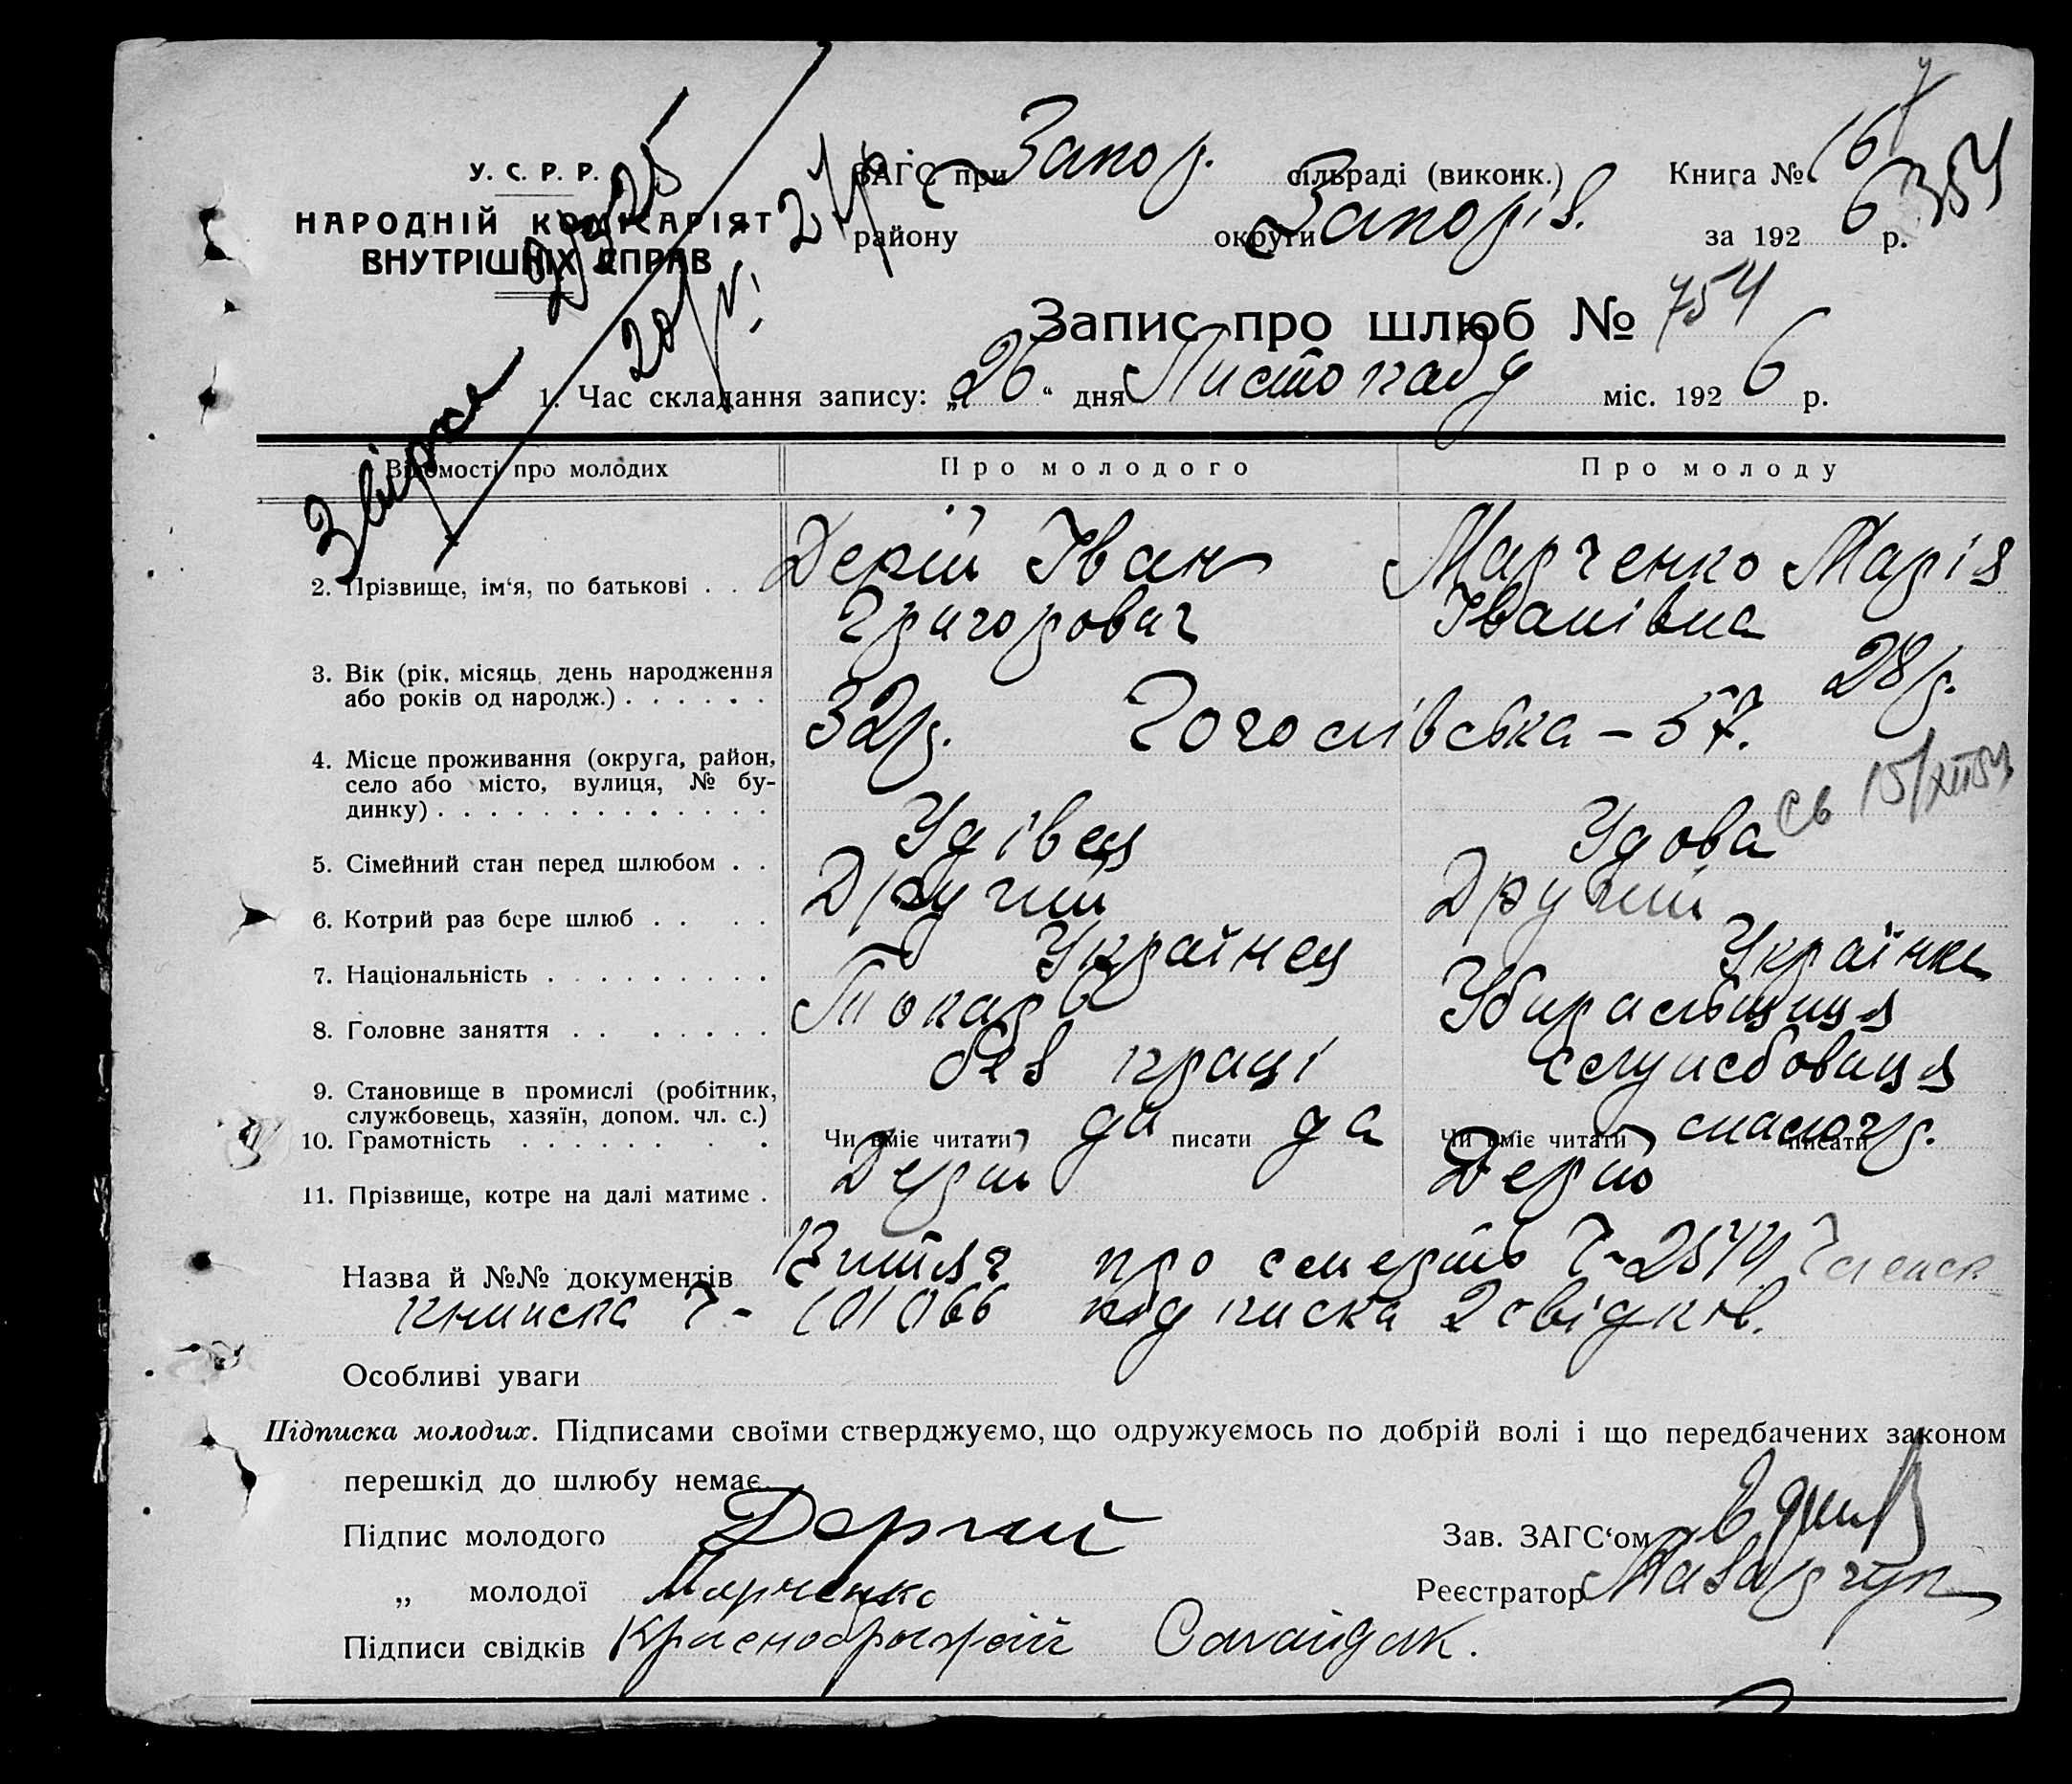 У. С. Р. Р.
НАРОДНІЙ КОМІСАРІЯТ
ВНУТРІШНІХ СПРАВ
ЗАГС при Запор. сільраді (виконк.) Книга № 16
району округи Запоріз. за 1926 р. 354
Запис про шлюб № 754
1. Час складання запису: „26“ дня Листопаду міс. 1926 р.
Відомості про молодих Про молодого Про молоду
2. Прізвище, ім‘я, по батькові . . . Дерій Іван Марченко Марія
Григорович Іванівна
3. Вік (рік, місяць, день народження
або років од народж.) . . . . . . 32р. 28р.
Гоголівська – 57.
4. Місце проживання (округа, район,
село або місто, вулиця, № бу-
динку) . . . . . . . . . . . . . св 15/XII 54
5. Сімейний стан перед шлюбом . . Удівец Удова
6. Котрий раз бере шлюб . . . . Другий Другий
7. Національність . . . . . . . . . Українец Українка
8. Головне заняття . . . . . . . Токарь Убиральщиця
9. Становище в промислі (робітник,
службовець, хазяїн, допом. чл. с.) без праці службовиця
10. Грамотність . . . . . . . . Чи вміє читати да писати да Чи вміє читати малогр. писати
11. Прізвище, котре на далі матиме . Дерій Дерій
Назва й №№ документів Витяг про смерть Ч-2574 Членск
книжка Ч- 101066 підписка 2 свідків.
Особливі уваги
Підписка молодих. Підписами своїми стверджуємо, що одружуємось по добрій волі і що передбачених законом
перешкід до шлюбу немає.
Підпис молодого Дергий Зав. ЗАГС‘ом
„ молодої Марченко Реєстратор
Підписи свідків